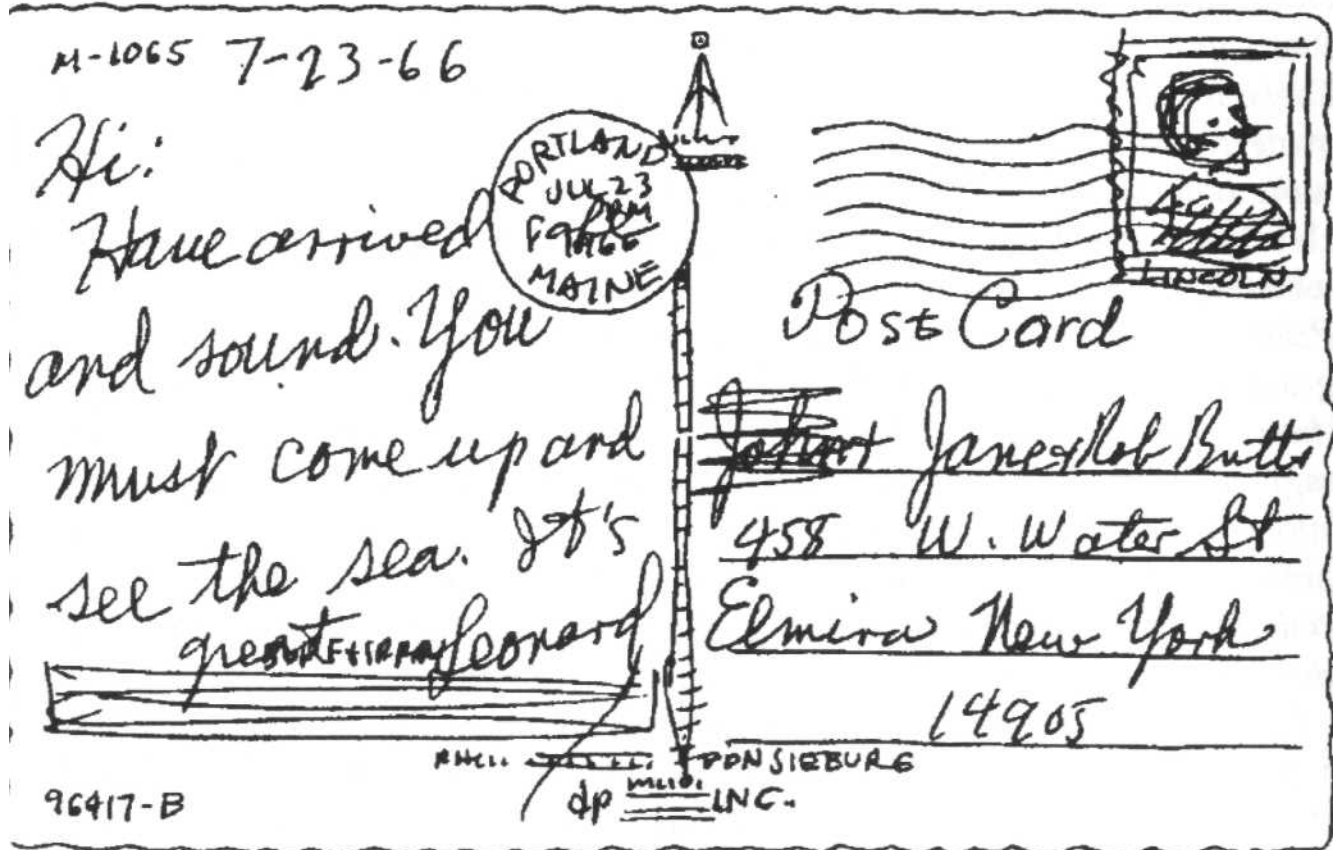 M-1065 7-23-66
Hi:
Have arrived
and sound. You
must come up and
see the sea. It's
great Leonard
96417-B
PORTLAND
JUL 23
PM
1966
MAINE
LINCOLN
Post Card
Jane & Rob Butts
458 W. Water St
Elmira New York
14905
DON SIEBURG
dp INC.